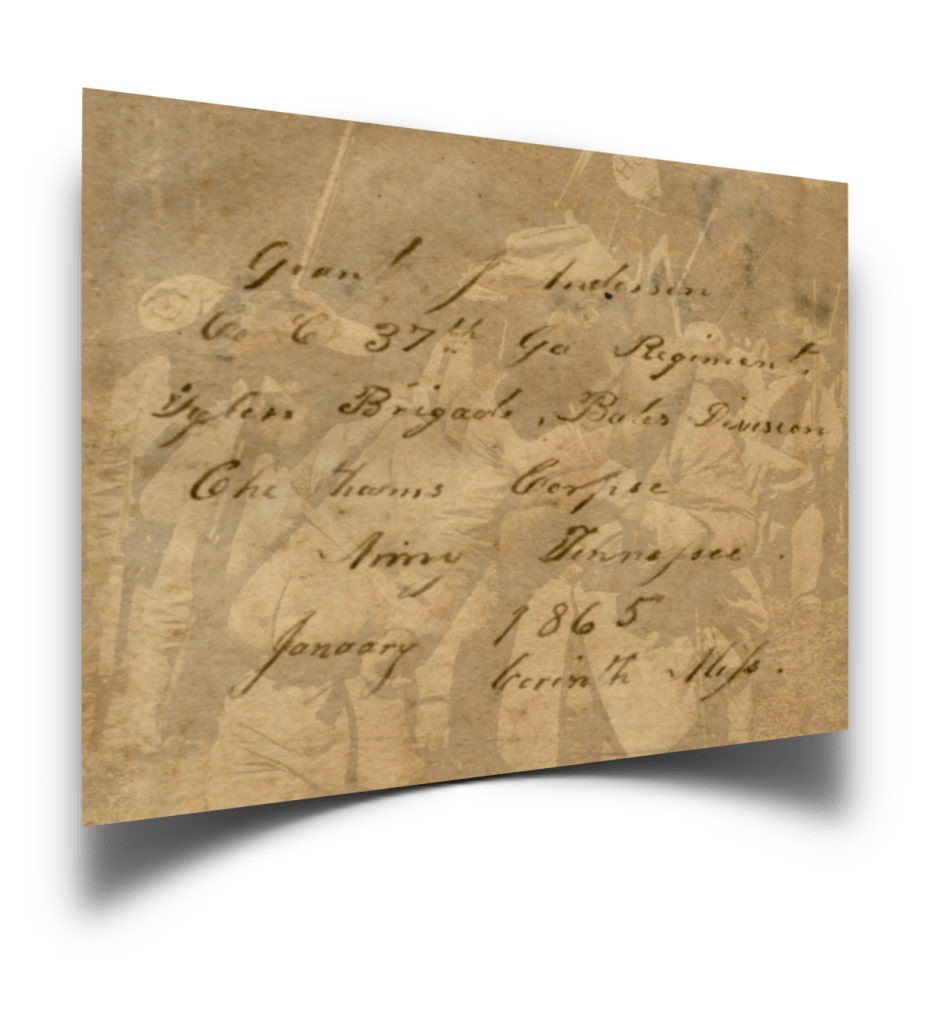 Grant J Anderson
Co C 37th Ga Regiment.
Tylers Brigade, Bates Division
Cheathams Corpse
Army Tennessee.
January 1865
Corinth Miss.